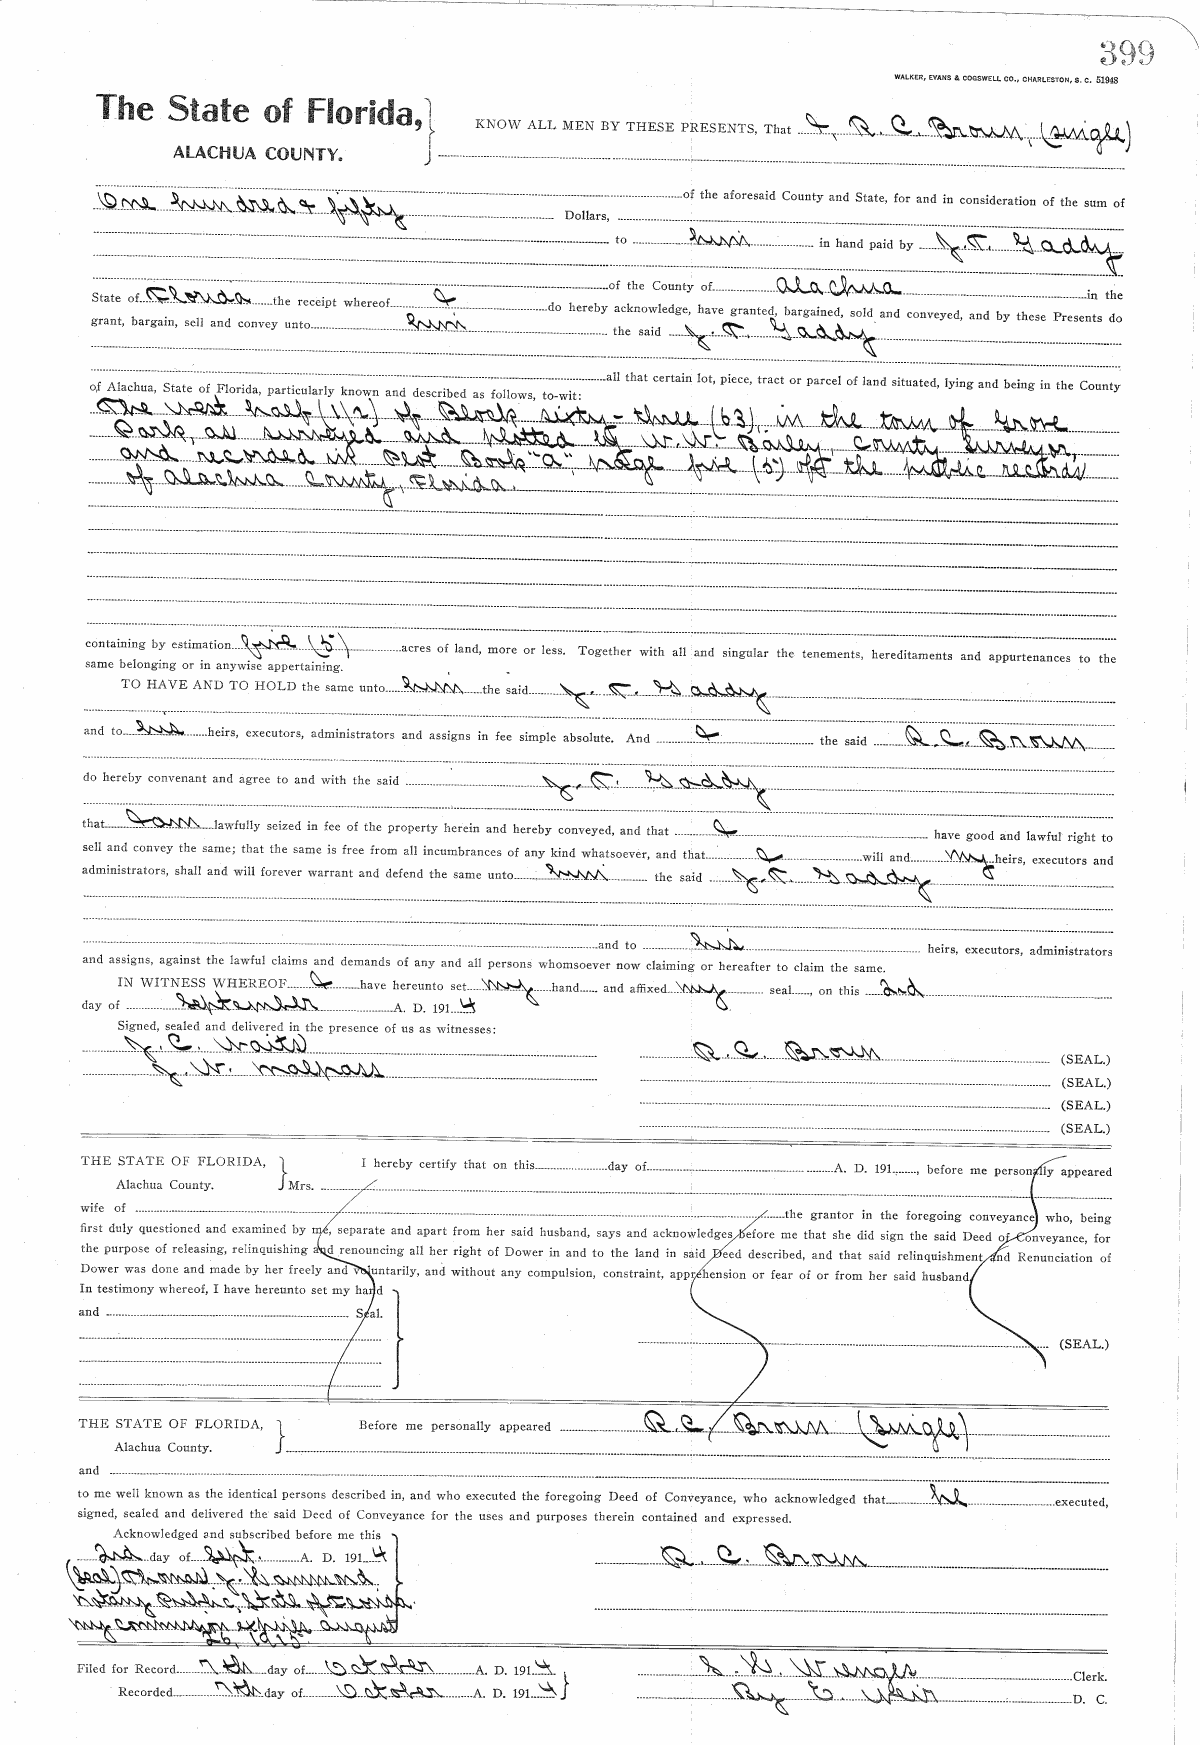 399
WALKER, EVANS & COGSWELL CO., CHARLESTON, S. C. 51948
The State of Florida,
KNOW ALL MEN BY THESE PRESENTS, That I, R. C. Broun, (single)
ALACHUA COUNTY.
of the aforesaid County and State, for and in consideration of the sum of
One hundred & fifty Dollars,
to him in hand paid by J. T. Gaddy
of the County of Alachua in the
State of Florida the receipt whereof I do hereby acknowledge, have granted, bargained, sold and conveyed, and by these Presents do
grant, bargain, sell and convey unto him the said J. T. Gaddy
all that certain lot, piece, tract or parcel of land situated, lying and being in the County
of Alachua, State of Florida, particularly known and described as follows, to-wit:
The west half (1/2) of Block sixty-three (63), in the town of Grove
Park, as surveyed and plotted by W. W. Bailey, county surveyor,
and recorded in Plot Book "A", page five (5) off the public records
of Alachua County, Florida.
containing by estimation five (5) acres of land, more or less. Together with all and singular the tenements, hereditaments and appurtenances to the
same belonging or in anywise appertaining.
TO HAVE AND TO HOLD the same unto him the said J. T. Gaddy
and to his heirs, executors, administrators and assigns in fee simple absolute. And I the said R. C. Broun
do hereby convenant and agree to and with the said J. T. Gaddy
that I am lawfully seized in fee of the property herein and hereby conveyed, and that I have good and lawful right to
sell and convey the same; that the same is free from all incumbrances of any kind whatsoever, and that I will and my heirs, executors and
administrators, shall and will forever warrant and defend the same unto him the said J. T. Gaddy
and to his heirs, executors, administrators
and assigns, against the lawful claims and demands of any and all persons whomsoever now claiming or hereafter to claim the same.
IN WITNESS WHEREOF I have hereunto set my hand and affixed my seal, on this 2nd
day of September A. D. 1914
Signed, sealed and delivered in the presence of us as witnesses:
J. C. Waits
R. C. Broun (SEAL.)
J. W. Malpass
(SEAL.)
(SEAL.)
(SEAL.)
THE STATE OF FLORIDA, I hereby certify that on this day of A. D. 191, before me personally appeared
Alachua County. Mrs.
wife of the grantor in the foregoing conveyance, who, being
first duly questioned and examined by me, separate and apart from her said husband, says and acknowledges before me that she did sign the said Deed of Conveyance, for
the purpose of releasing, relinquishing and renouncing all her right of Dower in and to the land in said Deed described, and that said relinquishment and Renunciation of
Dower was done and made by her freely and voluntarily, and without any compulsion, constraint, apprehension or fear of or from her said husband.
In testimony whereof, I have hereunto set my hand
and Seal.
(SEAL.)
THE STATE OF FLORIDA, Before me personally appeared R. C. Broun (single)
Alachua County.
and
to me well known as the identical persons described in, and who executed the foregoing Deed of Conveyance, who acknowledged that he executed,
signed, sealed and delivered the said Deed of Conveyance for the uses and purposes therein contained and expressed.
Acknowledged and subscribed before me this
2nd day of Sept. A. D. 1914
R. C. Broun
(Seal) Thomas J. Hammond
Notary Public, State of Florida.
my commission expires August
26, 1915.
Filed for Record 7th day of October A. D. 1914
S. H. Wienges Clerk.
Recorded 7th day of October A. D. 1914
By E. Weir D. C.